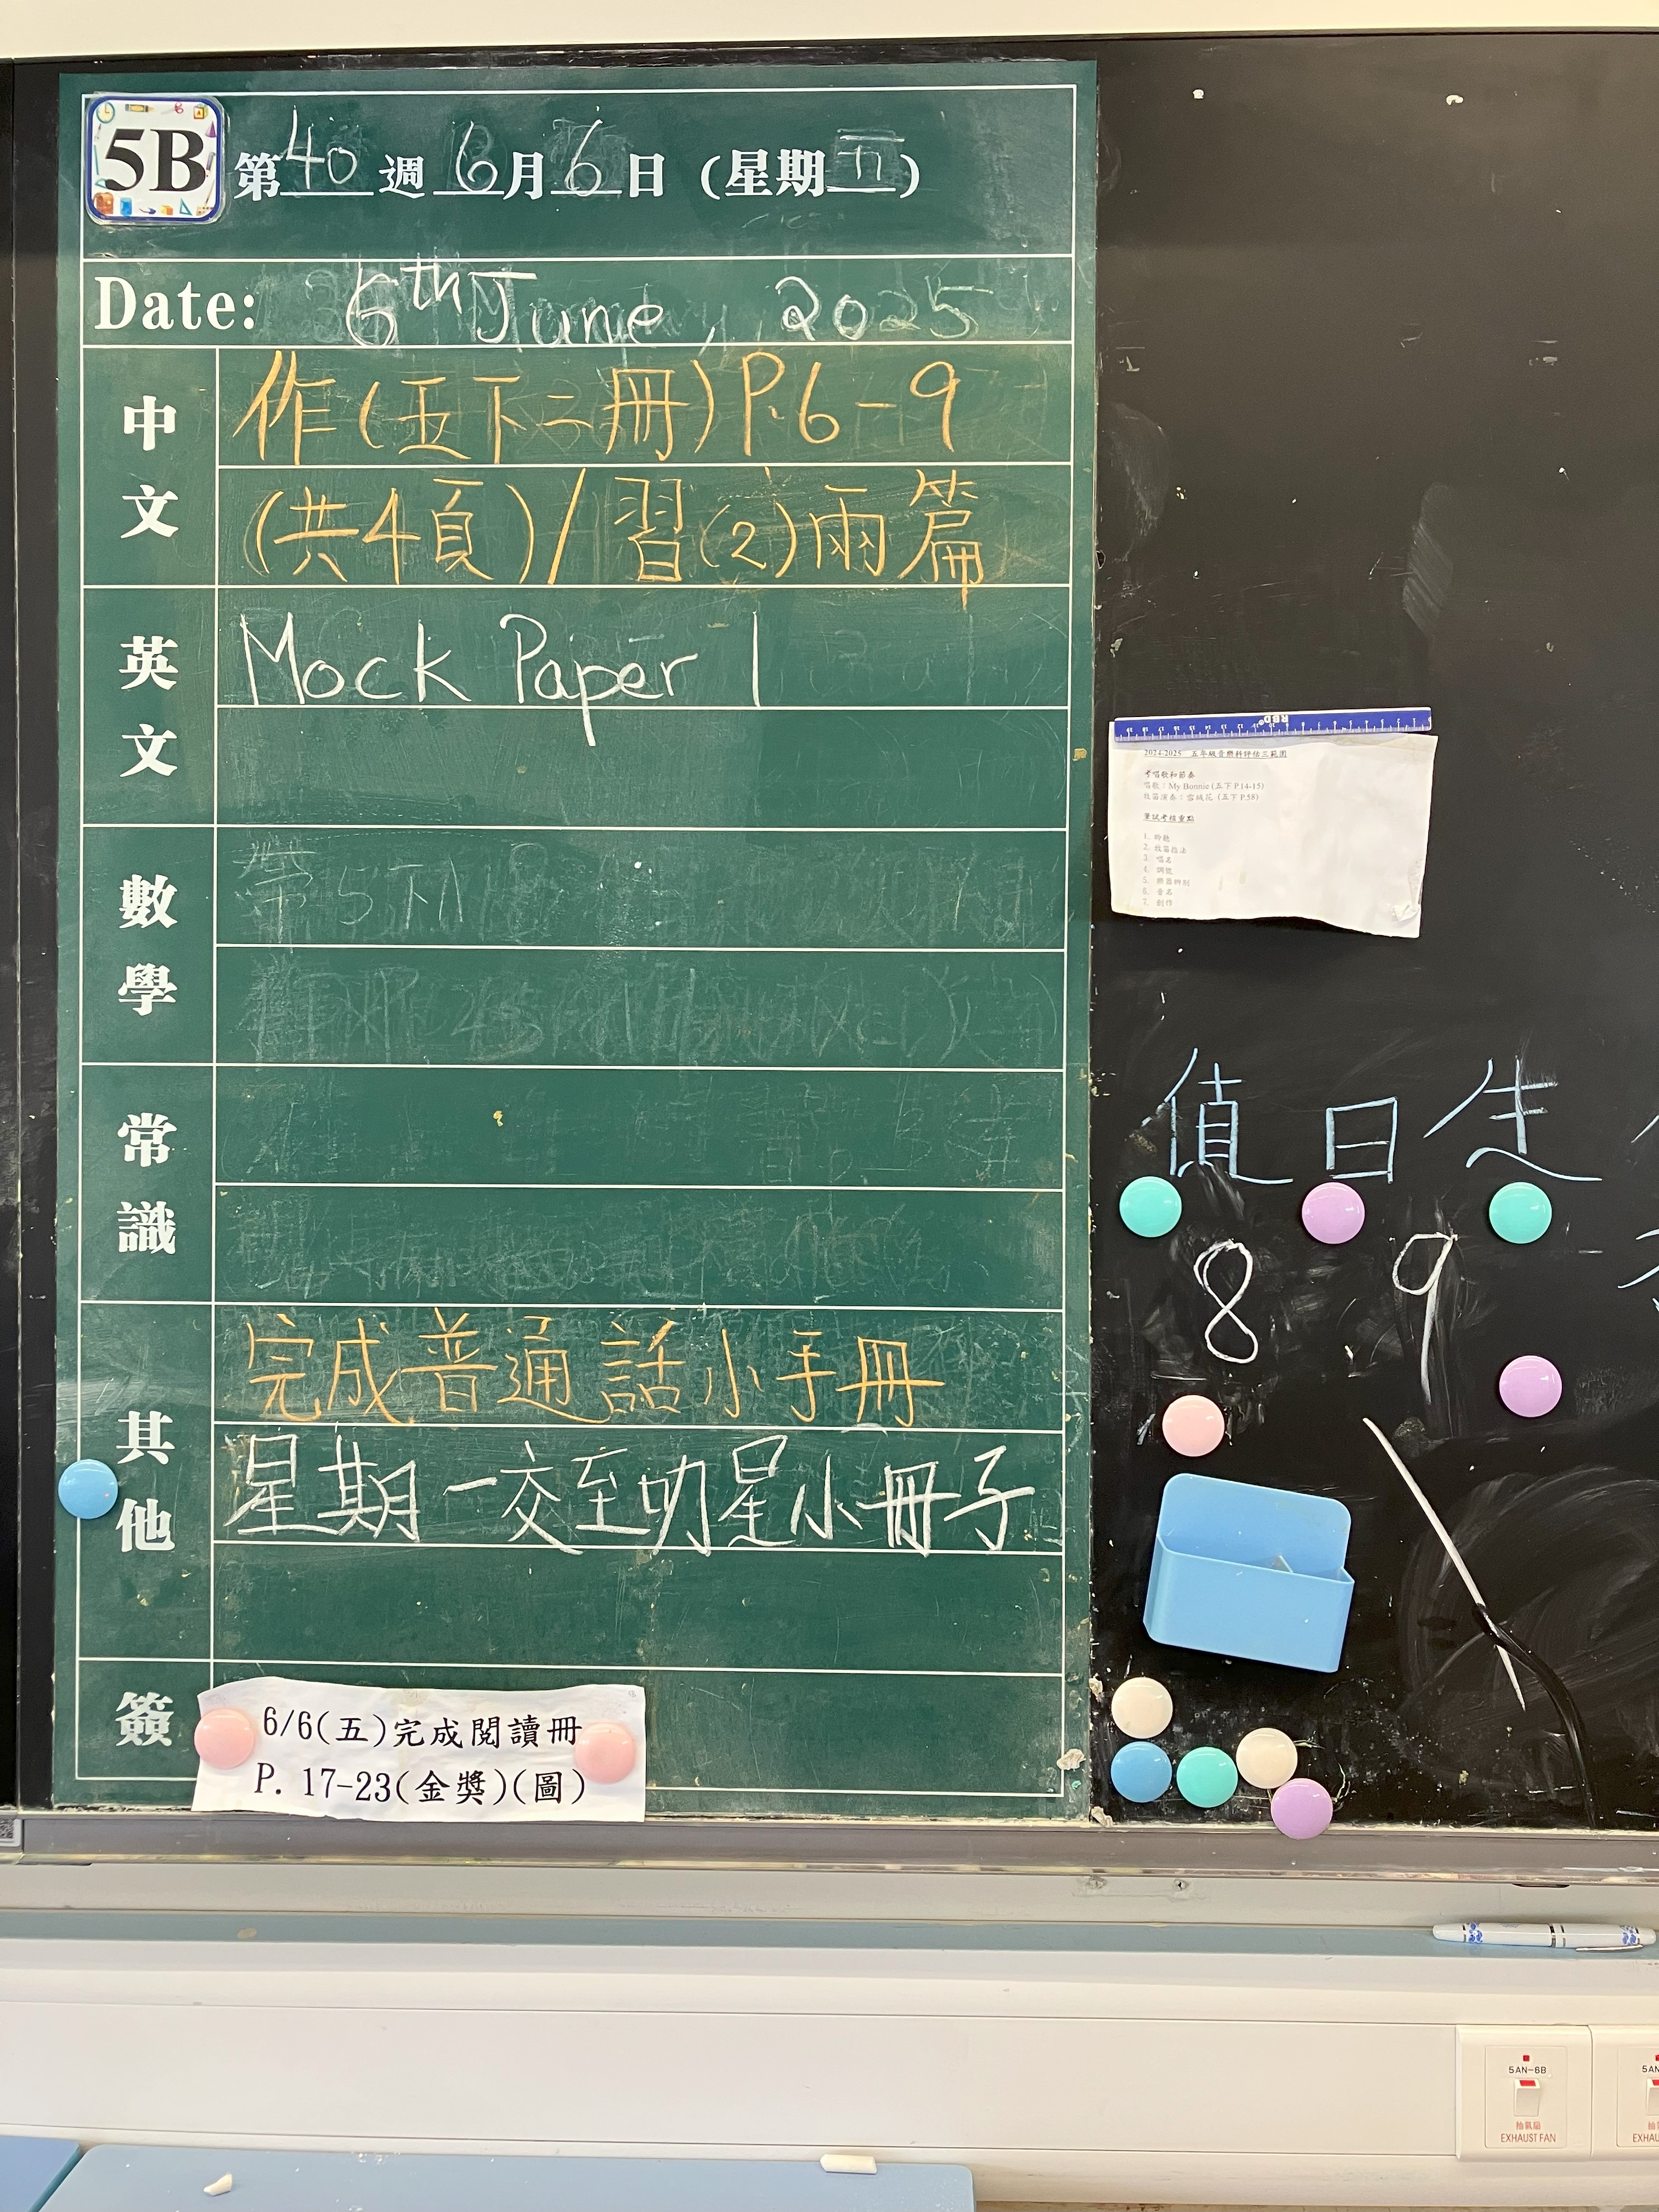 5B 第40週 6月6日 (星期五)
Date: 6th June, 2025
中文
作(五下二冊)P.6-9
(共4頁)/習(2)兩篇
英文
Mock Paper 1
數學
常識
其他
完成普通話小手冊
星期一交至叻星小冊子
簽
6/6(五)完成閱讀冊
P. 17-23(金獎)(圖)
RBD
2024-2025 五年級音樂科評估三範圍
考唱歌和節奏
唱歌：My Bonnie (五下 P.14-15)
牧笛演奏：雪絨花 (五下 P.58)
筆試考核重點
1. 聆聽
2. 牧笛指法
3. 唱名
4. 調號
5. 樂器辨別
6. 音名
7. 創作
值日生
8 9
5AN-6B
抽氣扇
EXHAUST FAN
5AN